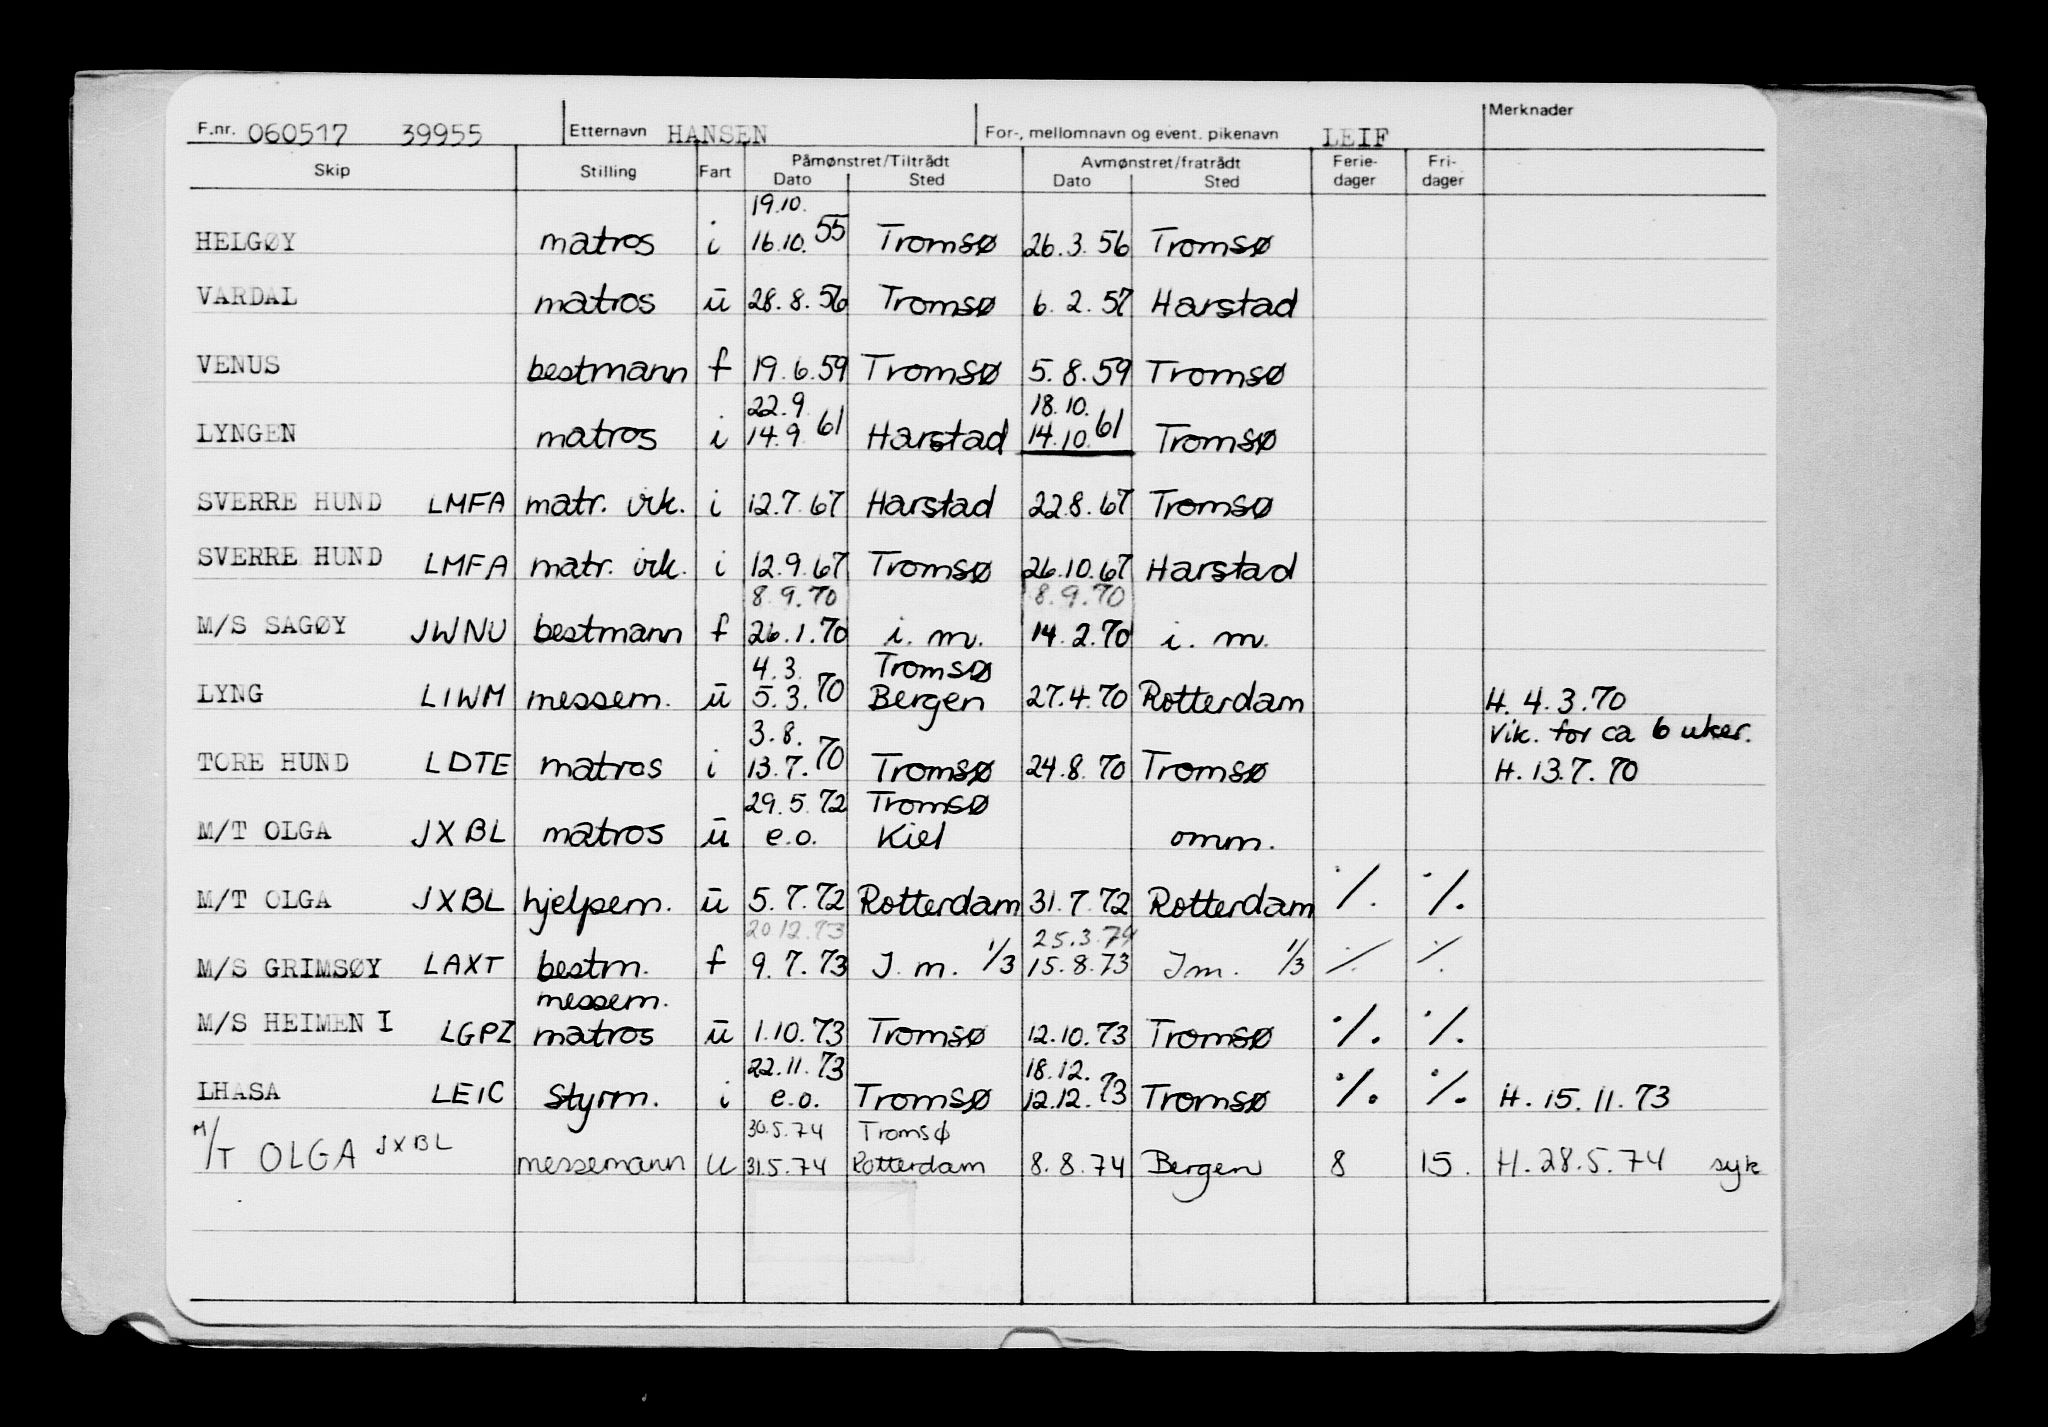 F.nr. 060517 39955 Etternavn HANSEN For-, mellomnavn og event. pikenavn LEIF Merknader
Skip Stilling Fart Påmønstret/Tiltrådt Avmønstret/fratrådt Ferie- Fri-
Dato Sted Dato Sted dager dager
19.10.
HELGØY matros i 16.10. 55 Tromsø 26.3.56 Tromsø
VARDAL matros u 28.8.56 Tromsø 6.2.57 Harstad
VENUS bestmann f 19.6.59 Tromsø 5.8.59 Tromsø
22.9 18.10.
LYNGEN matros i 14.9 61 Harstad 14.10. 61 Tromsø
SVERRE HUND LMFA matr. vik. i 12.7.67 Harstad 22.8.67 Tromsø
SVERRE HUND LMFA matr. vik. i 12.9.67 Tromsø 26.10.67 Harstad
8.9.70 8.9.70
M/S SAGØY JWNU bestmann f 26.1.70 i. m. 14.2.70 i. m.
4.3. Tromsø
LYNG LIWM messem. u 5.3. 70 Bergen 27.4.70 Rotterdam H. 4.3.70
3.8. Vik. for ca 6 uker.
TORE HUND LDTE matros i 13.7. 70 Tromsø 24.8.70 Tromsø H. 13.7.70
29.5.72 Tromsø
M/T OLGA JXBL matros u e.o. Kiel omm.
M/T OLGA JXBL hjelpem. u 5.7.72 Rotterdam 31.7.72 Rotterdam ·/. ·/.
20.12.73 25.3.74
M/S GRIMSØY LAXT bestm. f 9.7.73 I. m. 1/3 15.8.73 Im. 1/3 ·/. ·/.
messem.
M/S HEIMEN I LGPZ matros u 1.10.73 Tromsø 12.10.73 Tromsø ·/. ·/.
22.11.73 18.12.
LHASA LEIC Styrm. i e.o. Tromsø 12.12. 73 Tromsø ·/. ·/. H. 15.11.73
30.5.74 Tromsø
M/T OLGA JXBL messemann u 31.5.74 Rotterdam 8.8.74 Bergen 8 15. H. 28.5.74 syk